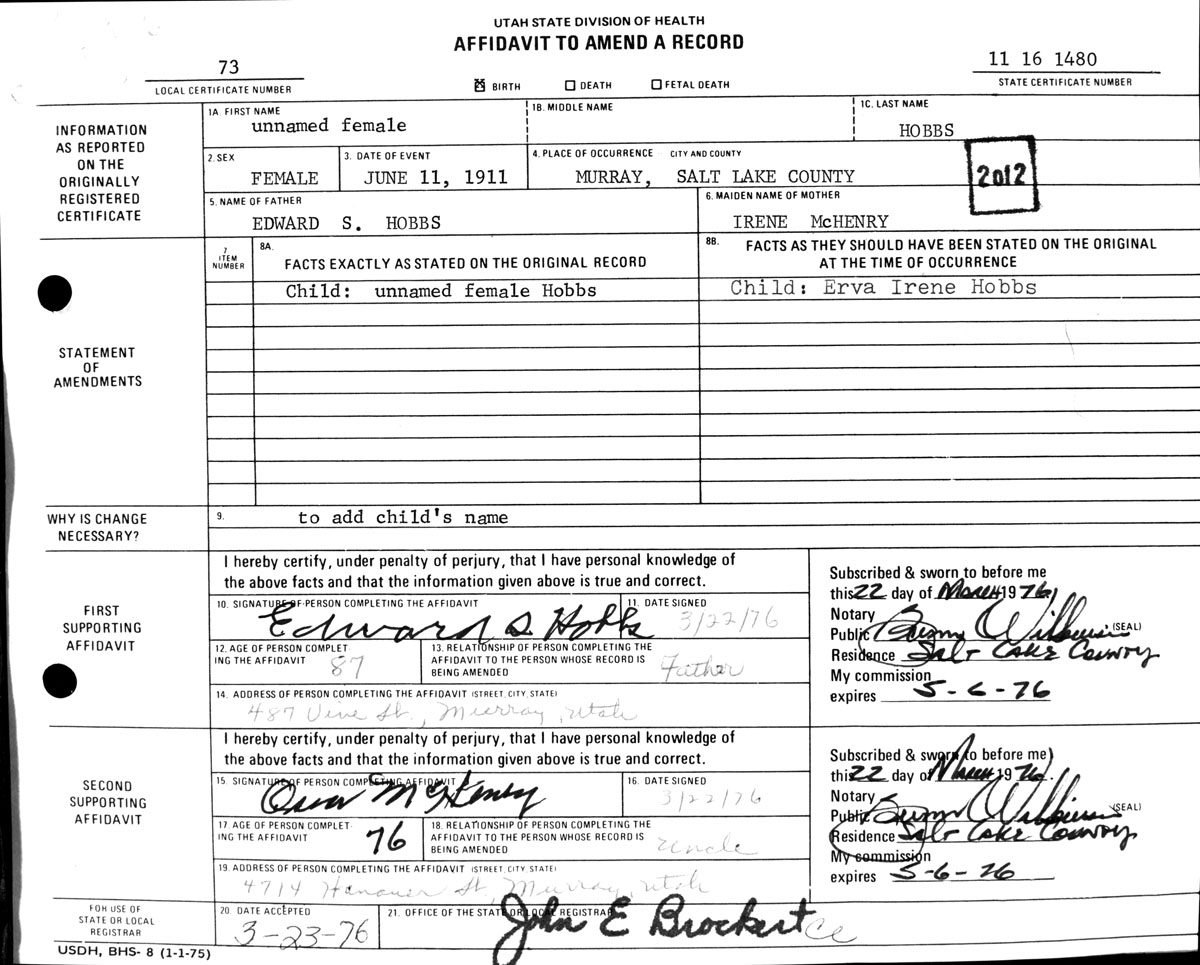 UTAH STATE DIVISION OF HEALTH
AFFIDAVIT TO AMEND A RECORD
73
LOCAL CERTIFICATE NUMBER
☒ BIRTH ☐ DEATH ☐ FETAL DEATH
11 16 1480
STATE CERTIFICATE NUMBER
INFORMATION
AS REPORTED
ON THE
ORIGINALLY
REGISTERED
CERTIFICATE
1A. FIRST NAME
unnamed female
1B. MIDDLE NAME
1C. LAST NAME
HOBBS
2. SEX
FEMALE
3. DATE OF EVENT
JUNE 11, 1911
4. PLACE OF OCCURRENCE CITY AND COUNTY
MURRAY, SALT LAKE COUNTY
2 of 2
5. NAME OF FATHER
EDWARD S. HOBBS
6. MAIDEN NAME OF MOTHER
IRENE McHENRY
STATEMENT
OF
AMENDMENTS
7
ITEM
NUMBER
8A.
FACTS EXACTLY AS STATED ON THE ORIGINAL RECORD
8B.
FACTS AS THEY SHOULD HAVE BEEN STATED ON THE ORIGINAL
AT THE TIME OF OCCURRENCE
Child: unnamed female Hobbs
Child: Erva Irene Hobbs
WHY IS CHANGE
NECESSARY?
9. to add child's name
FIRST
SUPPORTING
AFFIDAVIT
I hereby certify, under penalty of perjury, that I have personal knowledge of
the above facts and that the information given above is true and correct.
10. SIGNATURE OF PERSON COMPLETING THE AFFIDAVIT
Edward S Hobbs
11. DATE SIGNED
3/22/76
12. AGE OF PERSON COMPLET
ING THE AFFIDAVIT 87
13. RELATIONSHIP OF PERSON COMPLETING THE
AFFIDAVIT TO THE PERSON WHOSE RECORD IS
BEING AMENDED Father
14. ADDRESS OF PERSON COMPLETING THE AFFIDAVIT (STREET, CITY, STATE)
487 Vine St., Murray, Utah
Subscribed & sworn to before me
this 22 day of March 1976
Notary
Public (SEAL)
Residence Salt Lake County
My commission
expires 5-6-76
SECOND
SUPPORTING
AFFIDAVIT
I hereby certify, under penalty of perjury, that I have personal knowledge of
the above facts and that the information given above is true and correct.
15. SIGNATURE OF PERSON COMPLETING AFFIDAVIT
McHenry
16. DATE SIGNED
3/22/76
17. AGE OF PERSON COMPLET
ING THE AFFIDAVIT 76
18. RELATIONSHIP OF PERSON COMPLETING THE
AFFIDAVIT TO THE PERSON WHOSE RECORD IS
BEING AMENDED Uncle
19. ADDRESS OF PERSON COMPLETING THE AFFIDAVIT (STREET, CITY, STATE)
4714 Hanauer St, Murray, Utah
Subscribed & sworn to before me
this 22 day of March 1976.
Notary
Public (SEAL)
Residence Salt Lake County
My commission
expires 5-6-76
FOR USE OF
STATE OR LOCAL
REGISTRAR
20. DATE ACCEPTED
3-23-76
21. OFFICE OF THE STATE OR LOCAL REGISTRAR
John E Brockert
USDH, BHS- 8 (1-1-75)